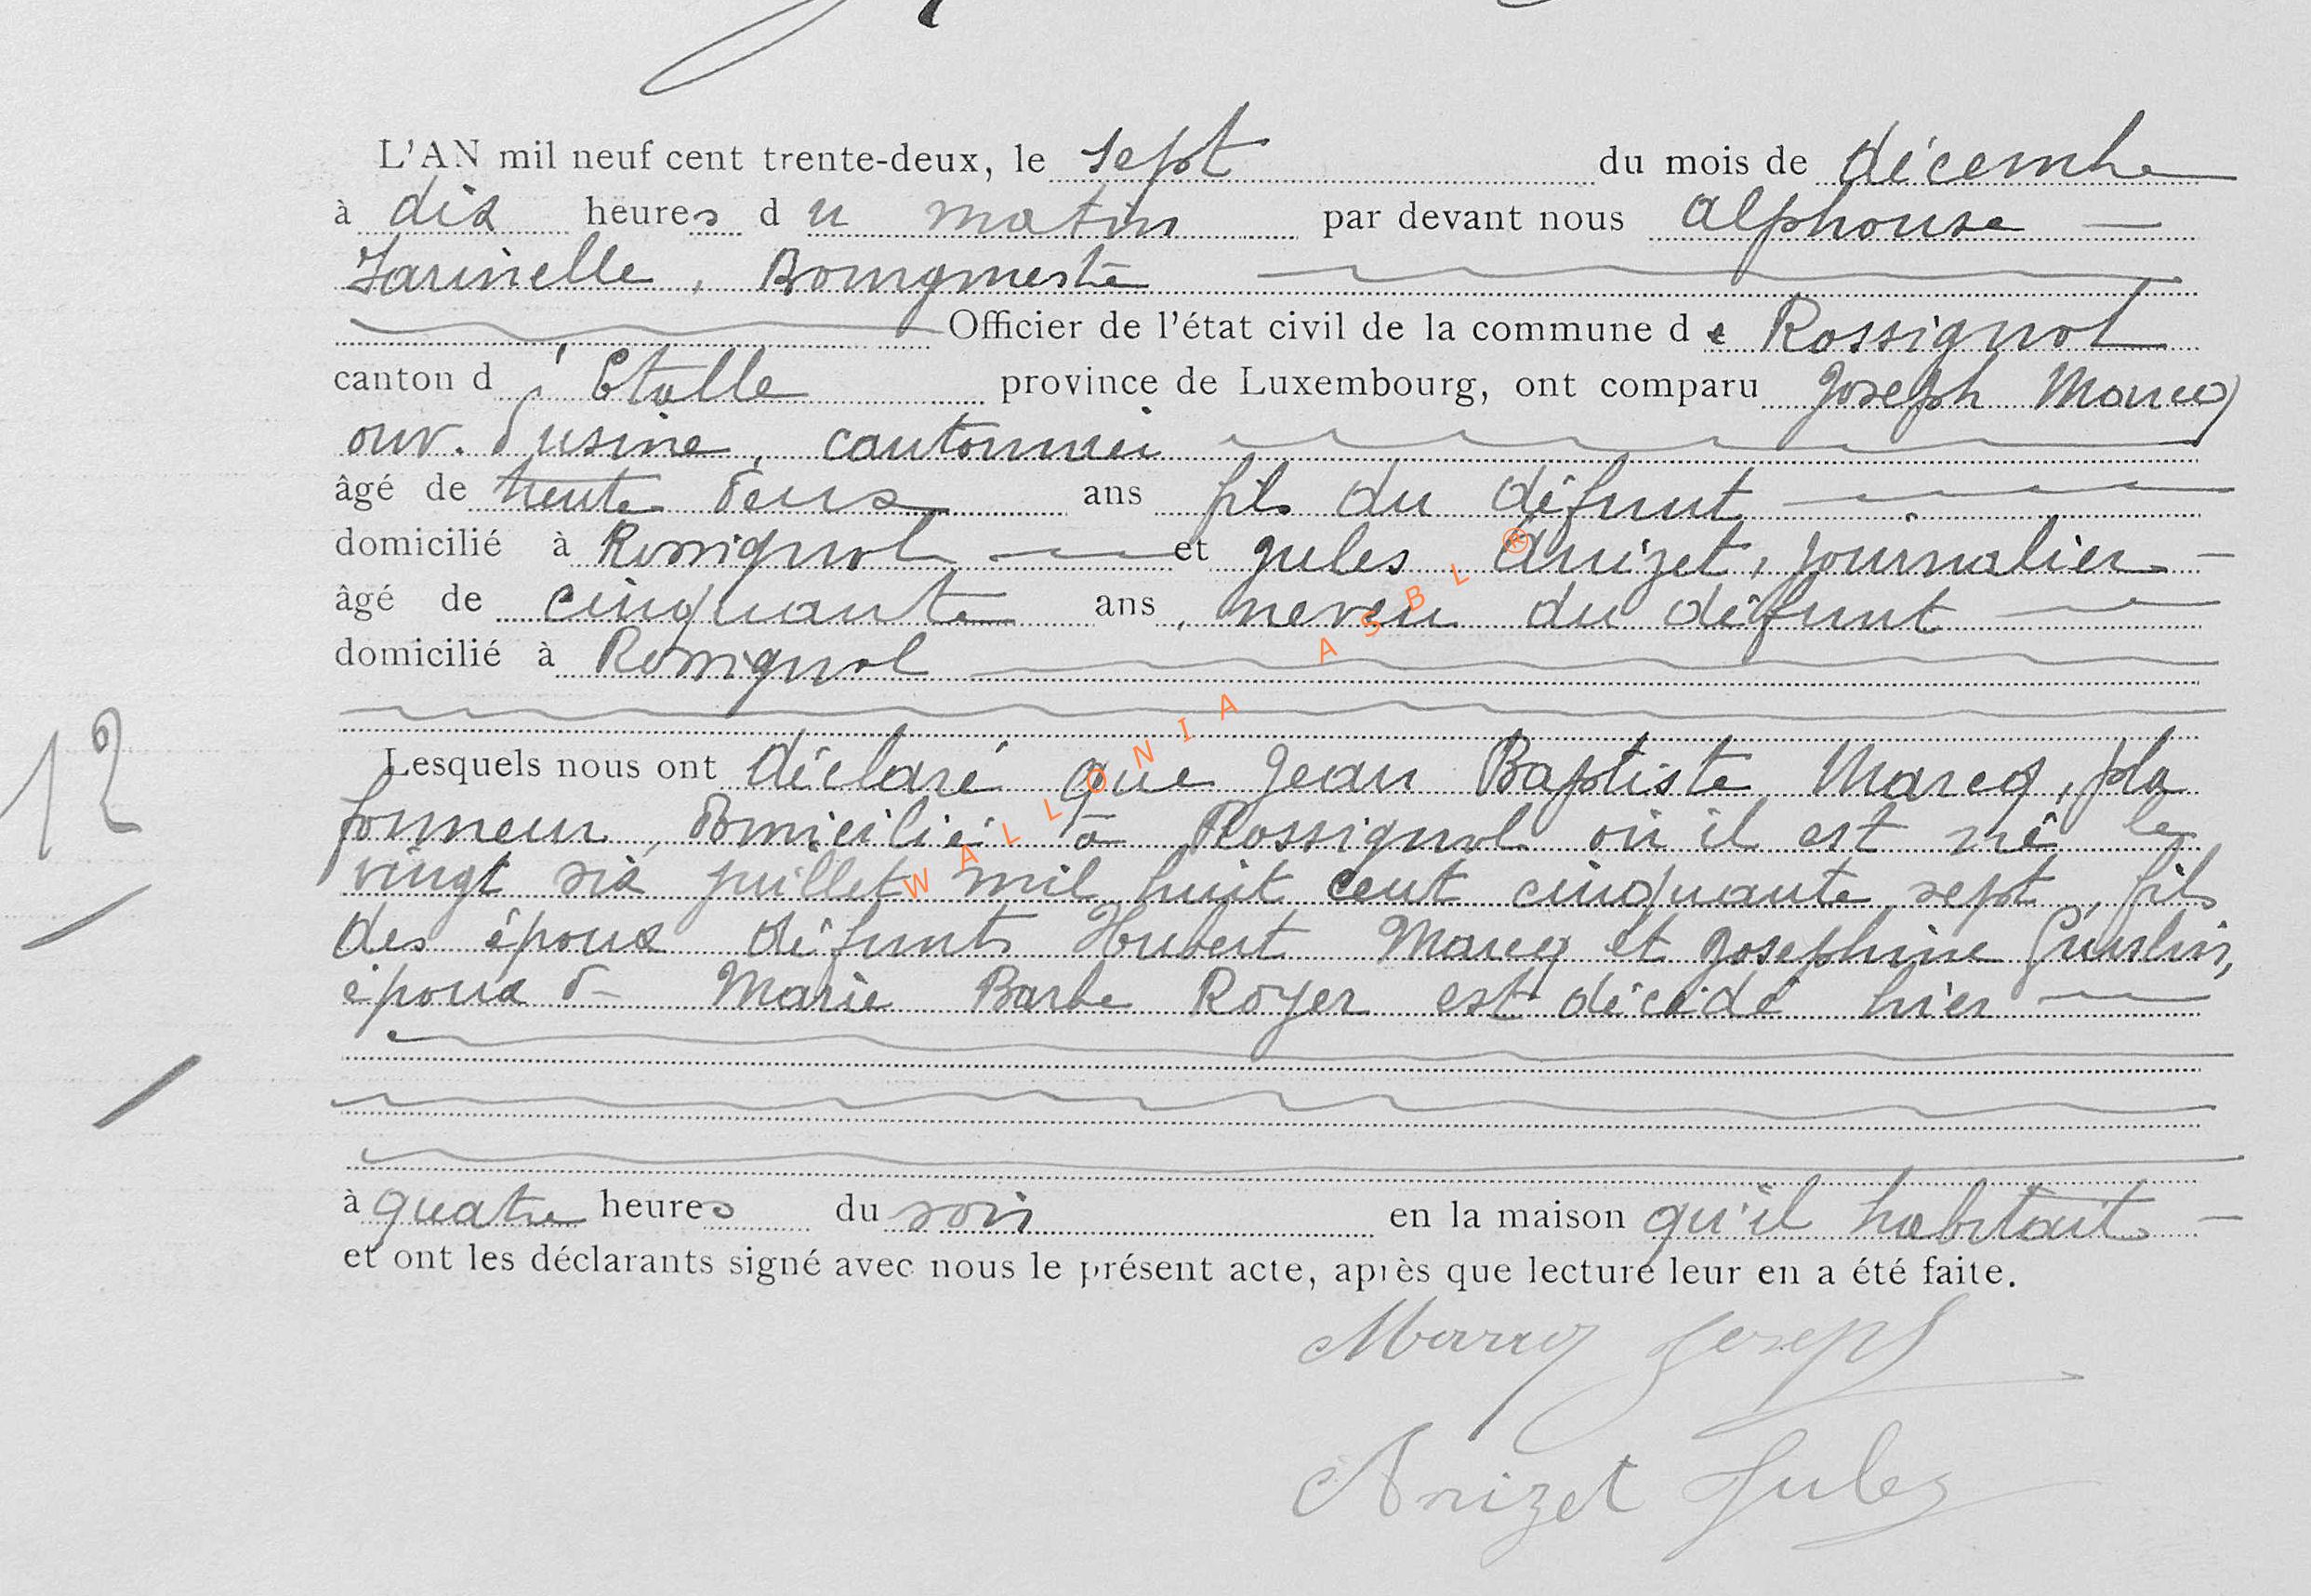 L'AN mil neuf cent trente-deux, le sept du mois de décembre
à dix heures du matin par devant nous Alphonse
Bourgmestre
Officier de l'état civil de la commune de Rossignol
canton d'Etalle province de Luxembourg, ont comparu Joseph Marcq
ouv. d'usine, cantonnier
âgé de trente deux ans fils du défunt
domicilié à Rossignol et Jules Anizet, journalier
âgé de cinquante ans, neveu du défunt
domicilié à Rossignol
12
Lesquels nous ont déclaré que Jean Baptiste Marcq, pla
fonneur, domicilié à Rossignol où il est né le
vingt six juillet mil huit cent cinquante sept, fils
des époux défunts Hubert Marcq et Josephine
époux de Marie Barbe Royer est décédé hier
à quatre heures du soir en la maison qu'il habitait
et ont les déclarants signé avec nous le présent acte, après que lecture leur en a été faite.
Marcq Joseph
Anizet Jules
WALLONIA ASBL ®